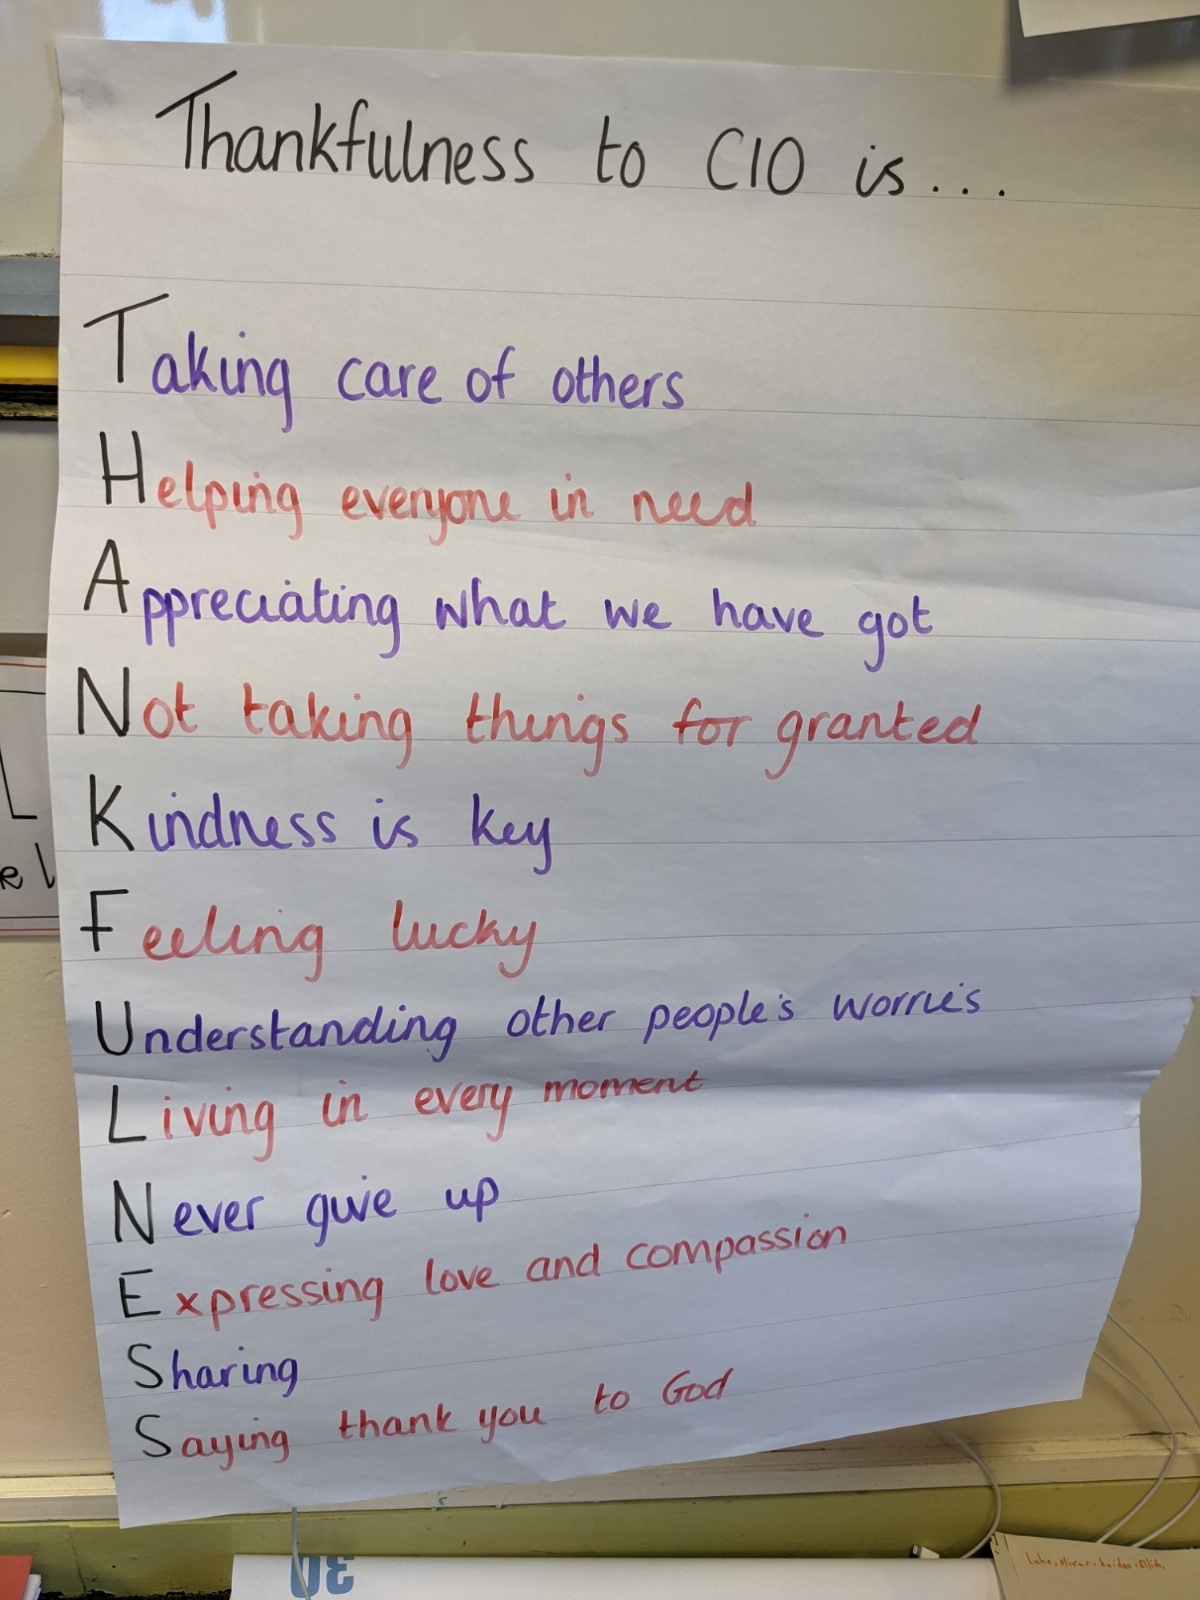 Thankfulness to C10 is...
Taking care of others
Helping everyone in need
Appreciating what we have got
Not taking things for granted
Kindness is key
Feeling lucky
Understanding other people's worries
Living in every moment
Never give up
Expressing love and compassion
Sharing
Saying thank you to God
30